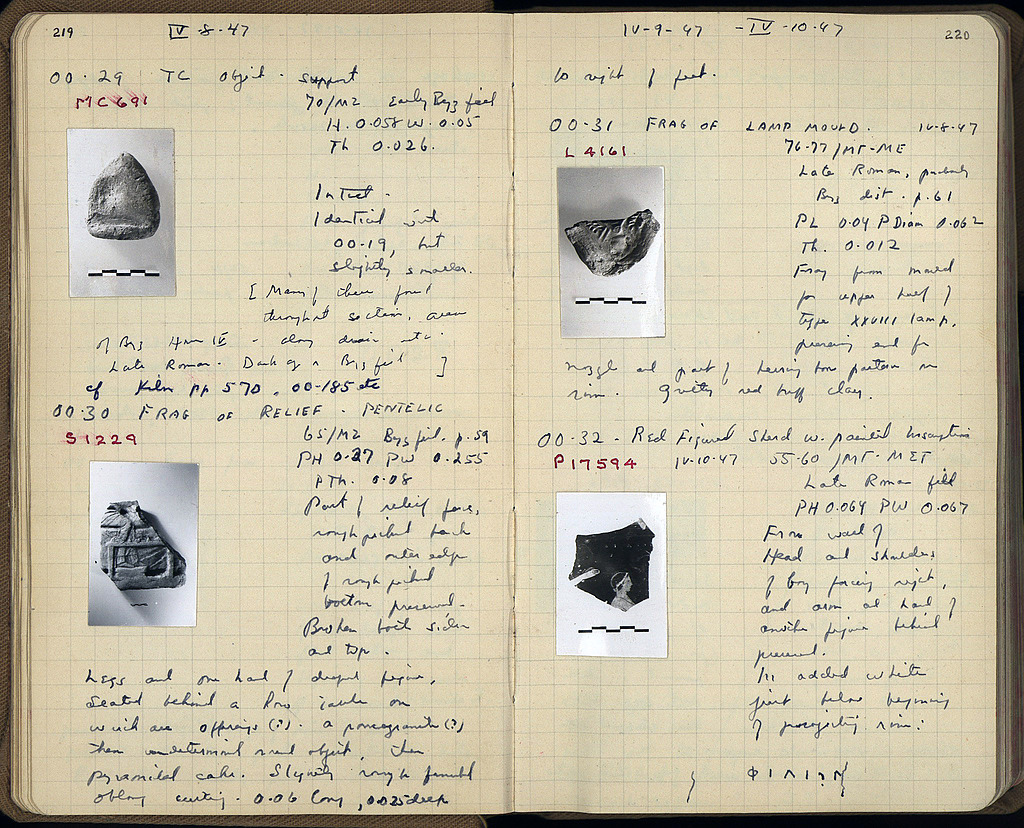 219
IV-8-47
OO·29 TC object - support
MC 691
70/ΜΖ Early Byz fill
H. 0.058 W. 0.05
Th 0.026.
Intact.
Identical with
OO·19, but
slightly smaller.
[Many of these found
throughout section, area
of Byz House IV - along drain etc.
Late Roman - Dark age & Byz fill ]
cf Kiln pp 570, OO-185 etc
OO·30 FRAG OF RELIEF - PENTELIC
S 1229
65/ΜΖ Byz fill. p. 59
PH 0.27 PW 0.255
PTh. 0.08
Part of relief face,
rough picked back
and outer edge
of rough picked
bottom preserved.
Broken both sides
and top.
Legs and one hand of draped figure,
seated behind a low table on
which are offerings (?). a pomegranate (?)
then undetermined round object, then
pyramidal cake. Slightly rough
oblong cutting. 0.06 long, 0.025 deep
220
IV-9-47 - IV-10-47
to right of feet.
OO-31 FRAG OF LAMP MOULD. IV-8-47
L 4161
76-77/ΜΓ-ΜΕ
Late Roman, probably
Byz dist. p. 61
PL 0.04 P Diam 0.062
Th. 0.012
Frag from mould
for upper half of
type XXVIII lamp,
preserving end for
nozzle and part of herring bone pattern on
rim. Gritty red buff clay.
OO-32 - Red Figured Sherd w. painted inscription
P 17594 IV-10-47 55-60/ΜΓ-ΜΣΤ
Late Roman fill
PH 0.064 PW 0.067
From wall of
Head and shoulders
of boy facing right,
and arm and hand of
another figure behind
preserved.
In added white
just below beginning
of projecting rim: